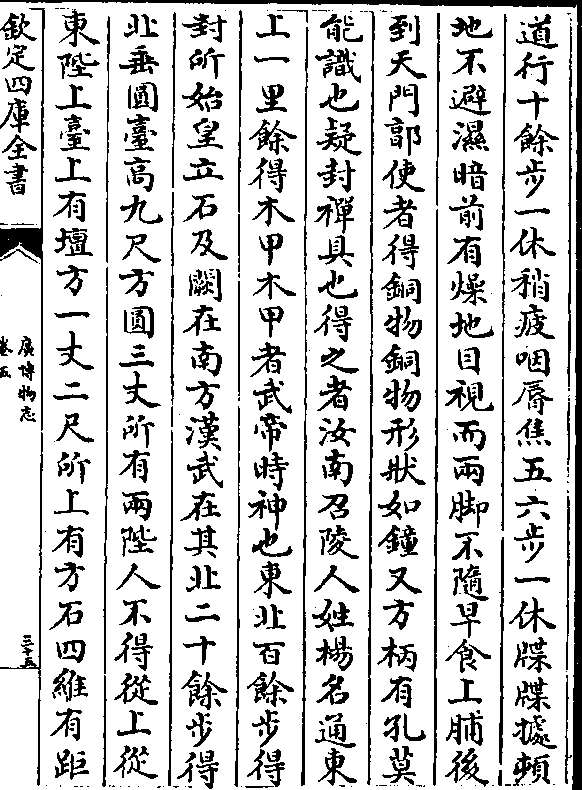 道行十餘步一休稍疲咽脣焦五六步一休牒牒據頓
地不避濕暗前有燥地目視而兩脚不隨早食上脯後
到天門郭使者得銅物銅物形狀如鐘又方柄有孔莫
能識也疑封禪具也得之者汝南召陵人姓楊名通東
上一里餘得木甲木甲者武帝時神也東北百餘步得
封所始皇立石及闕在南方漢武在其北二十餘步得
北垂圓臺髙九尺方圓三丈所有兩陛人不得從上從
東陛上臺上有壇方一丈二尺所上有方石四維有距
欽定四庫全書
廣博物志
卷五
三十五